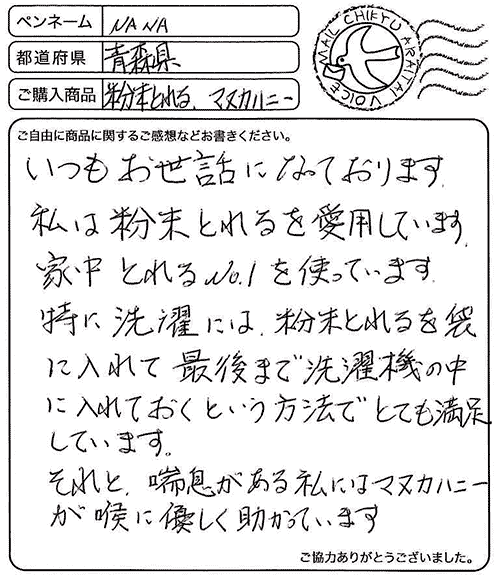 ペンネーム NANA
都道府県 青森県
ご購入商品 粉末とれる、マヌカハニー
MAIL CHIKYU ARAITAI VOICE
ご自由に商品に関するご感想などお書きください。
いつもお世話になっております。
私は粉末とれるを愛用しています。
家中とれるNo.1を使っています。
特に洗濯には、粉末とれるを袋
に入れて最後まで洗濯機の中
に入れておくという方法でとても満足
しています。
それと、喘息がある私にはマヌカハニー
が喉に優しく助かっています
ご協力ありがとうございました。